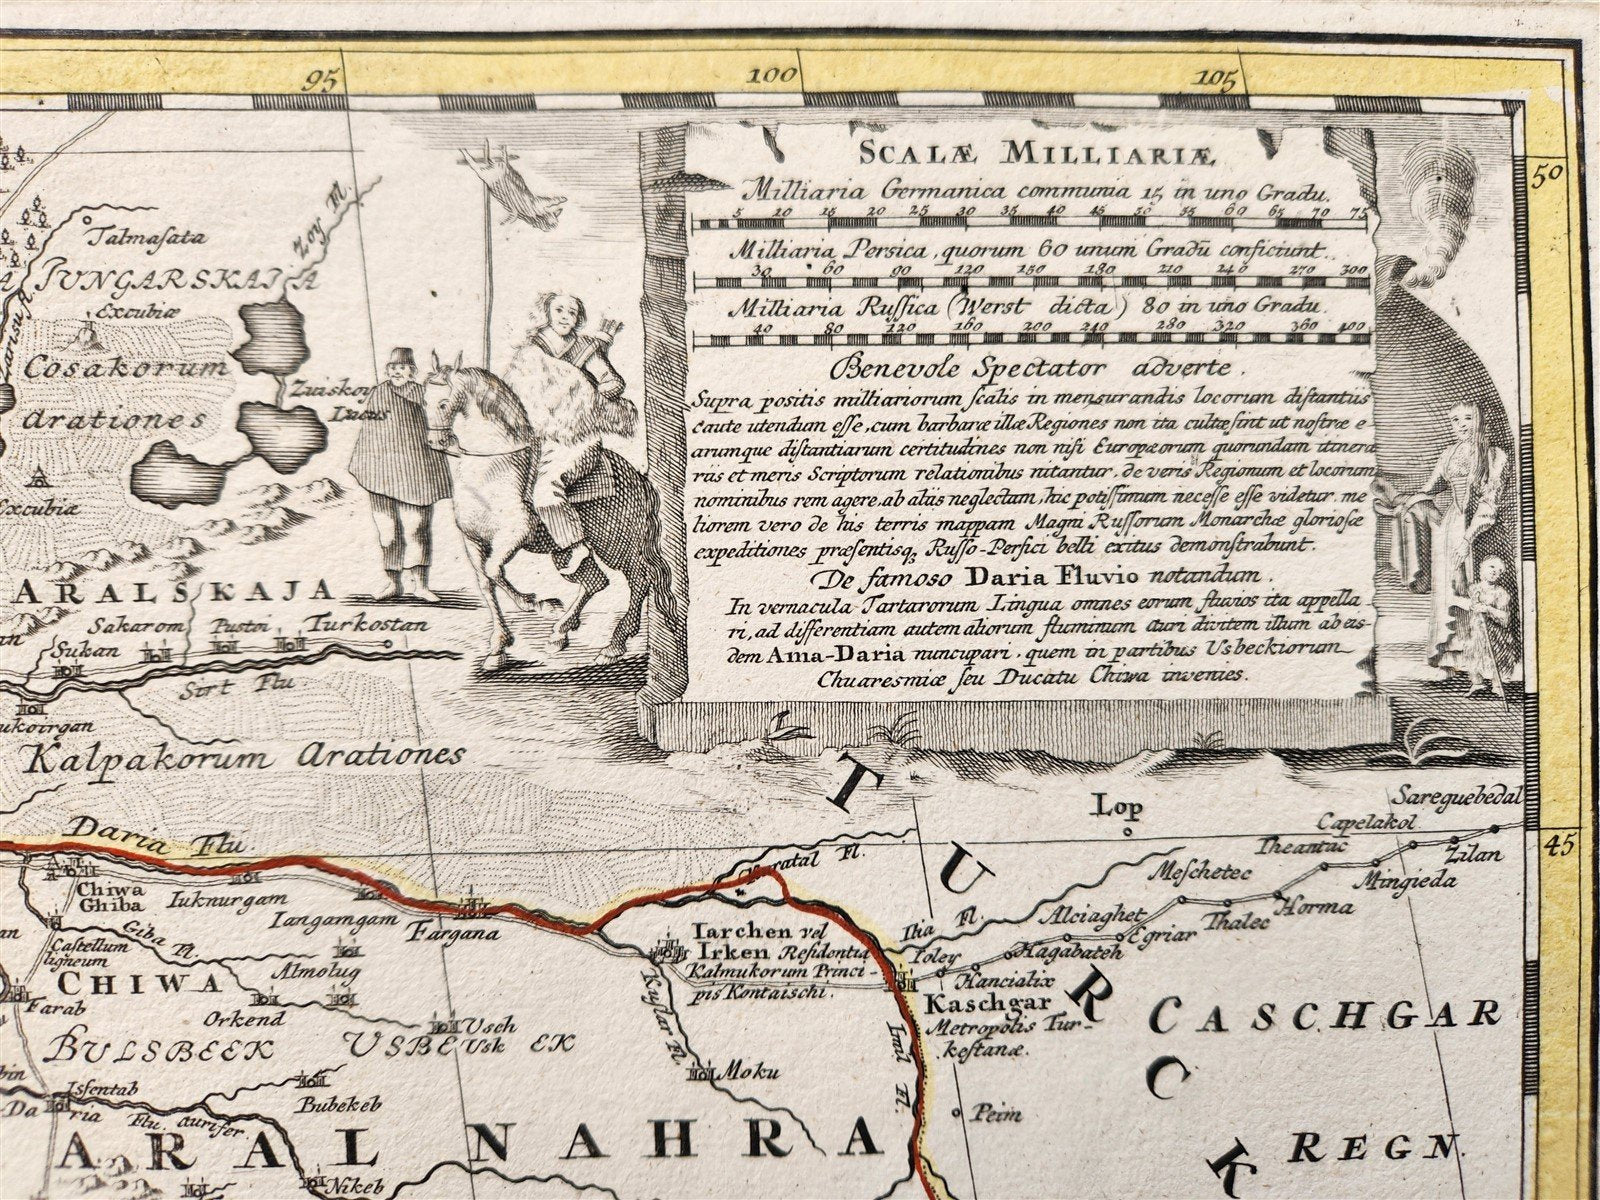 95
100
105
50
45
SCALÆ MILLIARIÆ
Milliaria Germanica communia 15 in uno Gradu.
5 10 15 20 25 30 35 40 45 50 55 60 65 70 75
Milliaria Persica, quorum 60 unum Gradū conficiunt.
30 60 90 120 150 180 210 240 270 300
Milliaria Ruſſica (Werst dicta) 80 in uno Gradu.
40 80 120 160 200 240 280 320 360 400
Benevole Spectator adverte.
Supra positis milliariorum ſcalis in mensurandis locorum diſtantiis
caute utendum eſſe, cum barbaræ illæ Regiones non ita cultæ ſint ut noſtræ e
arumque diſtantiarum certitudines non niſi Europæorum quorundam itinera
riis et meris Scriptorum relationibus nitantur. de veris Regionum et locorum
nominibus rem agere, ab aliis neglectam, hic potiſſimum neceſſe eſſe videtur. me
liorem vero de his terris mappam Magni Ruſſorum Monarchæ glorioſæ
expeditiones præſentisq₃ Ruſſo-Perſici belli exitus demonſtrabunt.
De famoso Daria Fluvio notandum.
In vernacula Tartarorum Lingua omnes eorum fluvios ita appella
ri, ad differentiam autem aliorum fluminum auri divitem illum ab eis-
dem Ama-Daria nuncupari, quem in partibus Usbeckiorum
Chuaresmiæ ſeu Ducatu Chiwa invenies.
Talmaſata
Zoy M.
JUNGARSKAJA
Excubiæ
Cosakorum
Arationes
Zuiskoy
Lacus
Excubiæ
ARALSKAJA
Sakarom
Pustoi
Turkostan
Sukan
Sirt Flu
ukoirgan
Kalpakorum Arationes
Daria Flu.
Chiwa
Ghiba
Iuknurgam
Iangamgam
Fargana
Giba Fl.
Castellum
ligneum
CHIWA
Almolug
Farab
Orkend
Usch
Usk
BULSBEEK
USBE EK
Isfentab
Da ria Flu. aurifer.
Bubekeb
ARAL NAHRA
Nikeb
Fl.
Iarchen vel
Irken Reſidentia
Kalmukorum Princi-
pis Kontaischi.
Moku
Ilia Fl.
Ioley
Hancialix
Kaschgar
Metropolis Tur-
keſtanæ.
Imil Fl.
Peim
Lop
Sareguebedal
Capelakol
Theantac
Zilan
Mingieda
Meſchetec
Horma
Thalec
Alciaghet
Egriar
Hagabateh
TURCK
CASCHGAR
REGN.